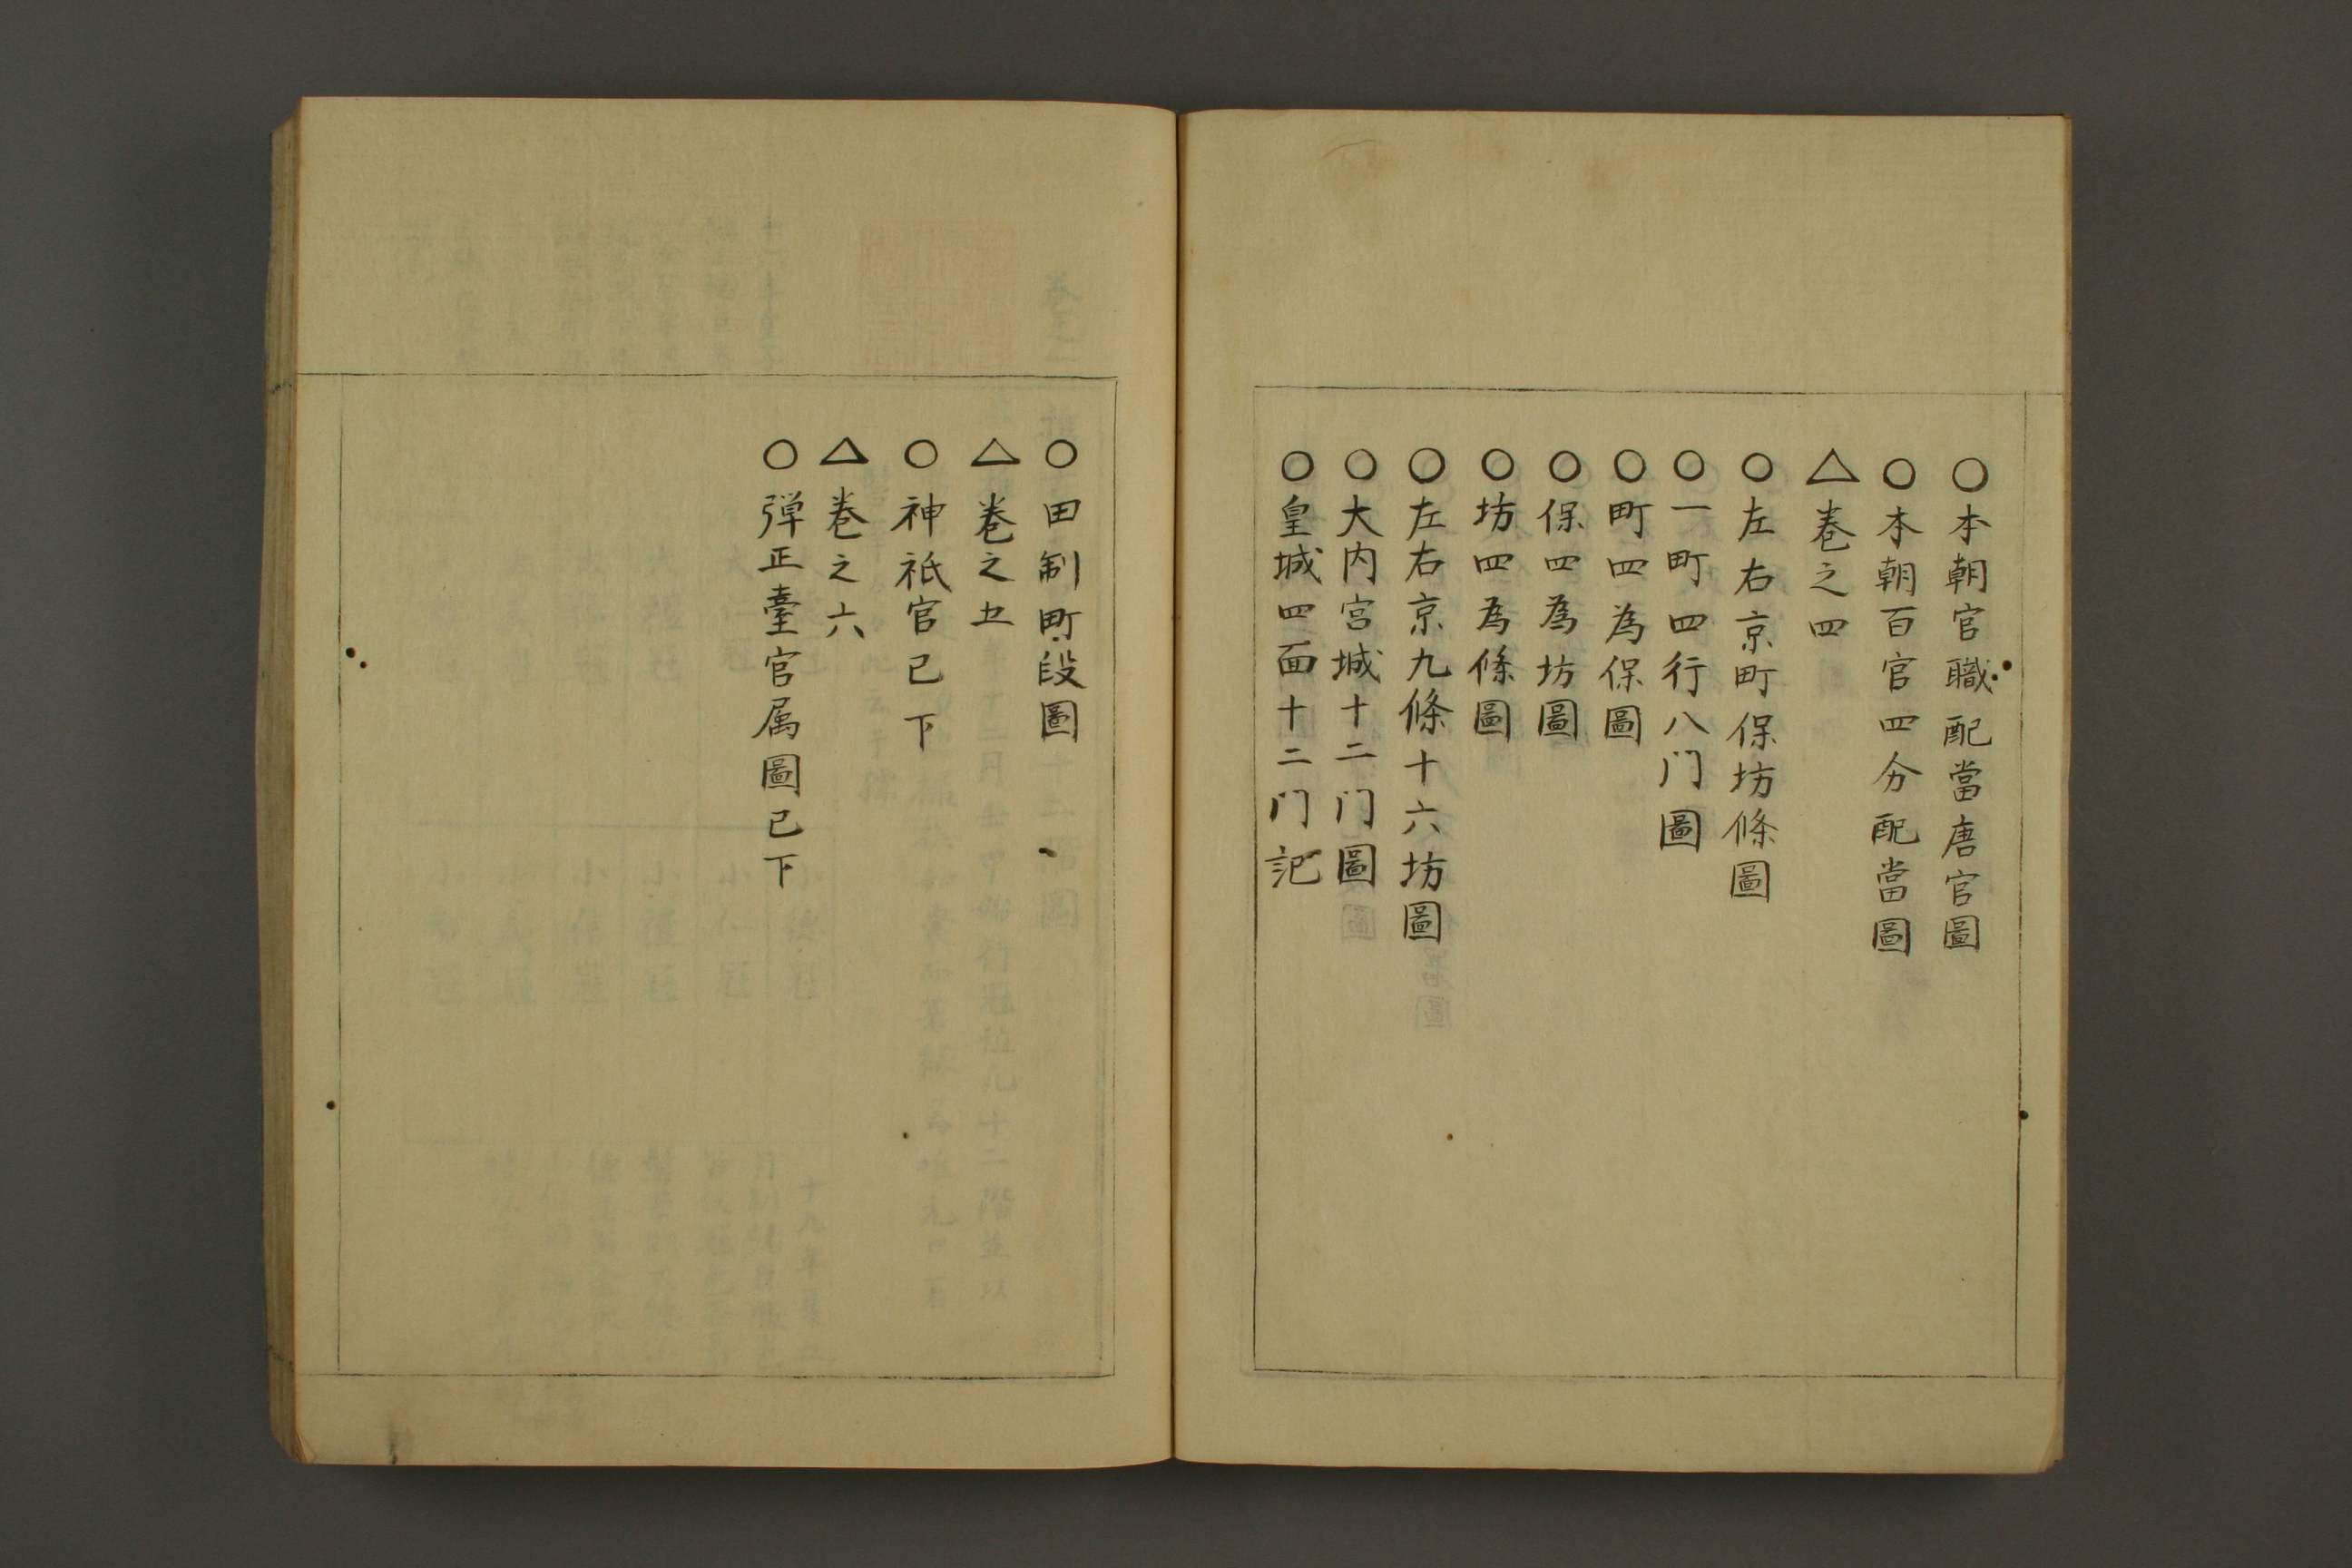 ○本朝官職配當唐官圖
○本朝百官四分配當圖
△巻之四
○左右京町保坊條圖
○一町四行八门圖
○町四為保圖
○保四為坊圖
○坊四為條圖
○左右京九條十六坊圖
○大内宮城十二门圖
○皇城四面十二门記
○田制町段圖
△巻之五
○神祇官已下
△巻之六
○弾正臺官属圖已下